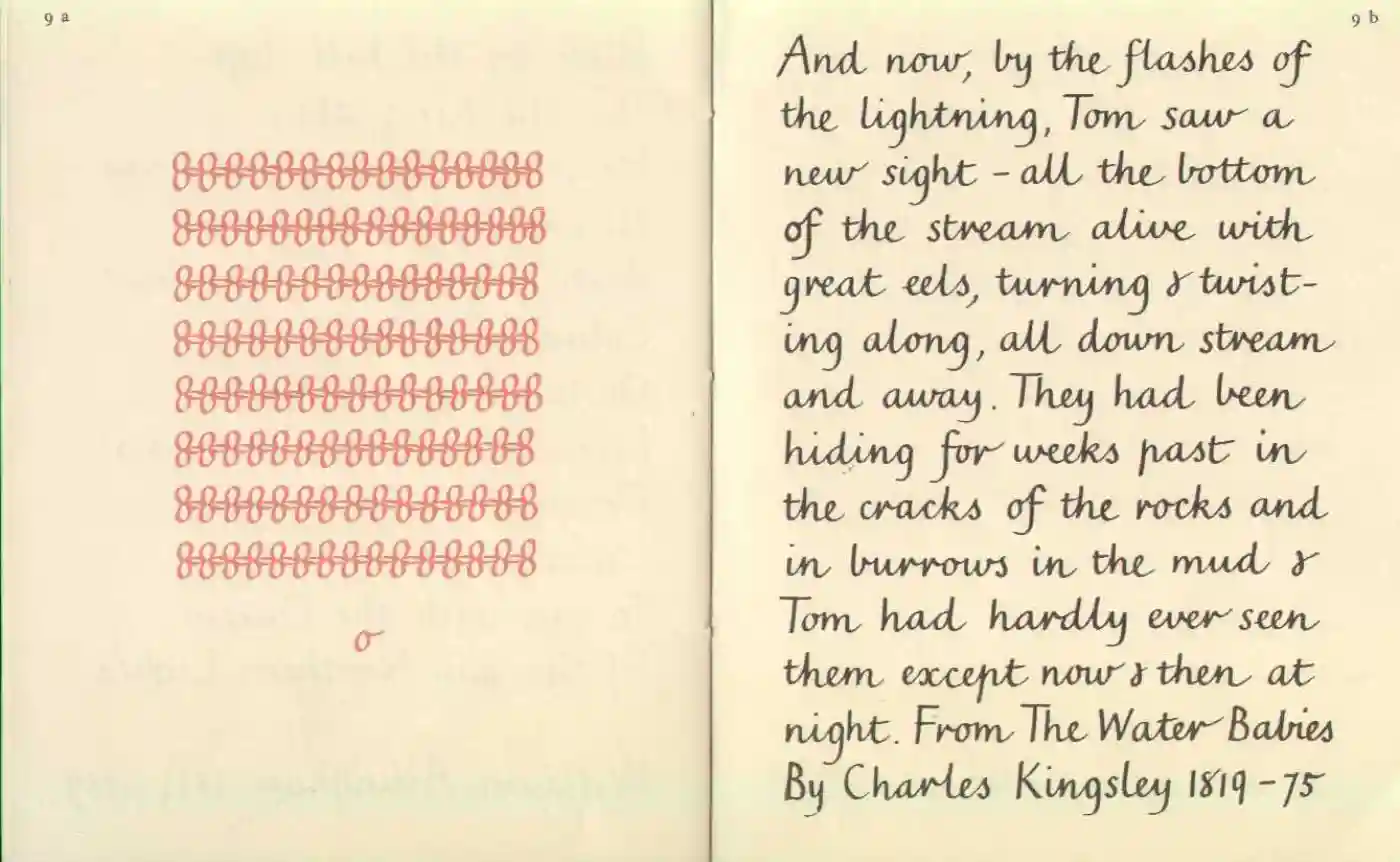 9 a
o
9 b
And now, by the flashes of
the lightning, Tom saw a
new sight – all the bottom
of the stream alive with
great eels, turning & twist-
ing along, all down stream
and away. They had been
hiding for weeks past in
the cracks of the rocks and
in burrows in the mud &
Tom had hardly ever seen
them except now & then at
night. From The Water Babies
By Charles Kingsley 1819 – 75